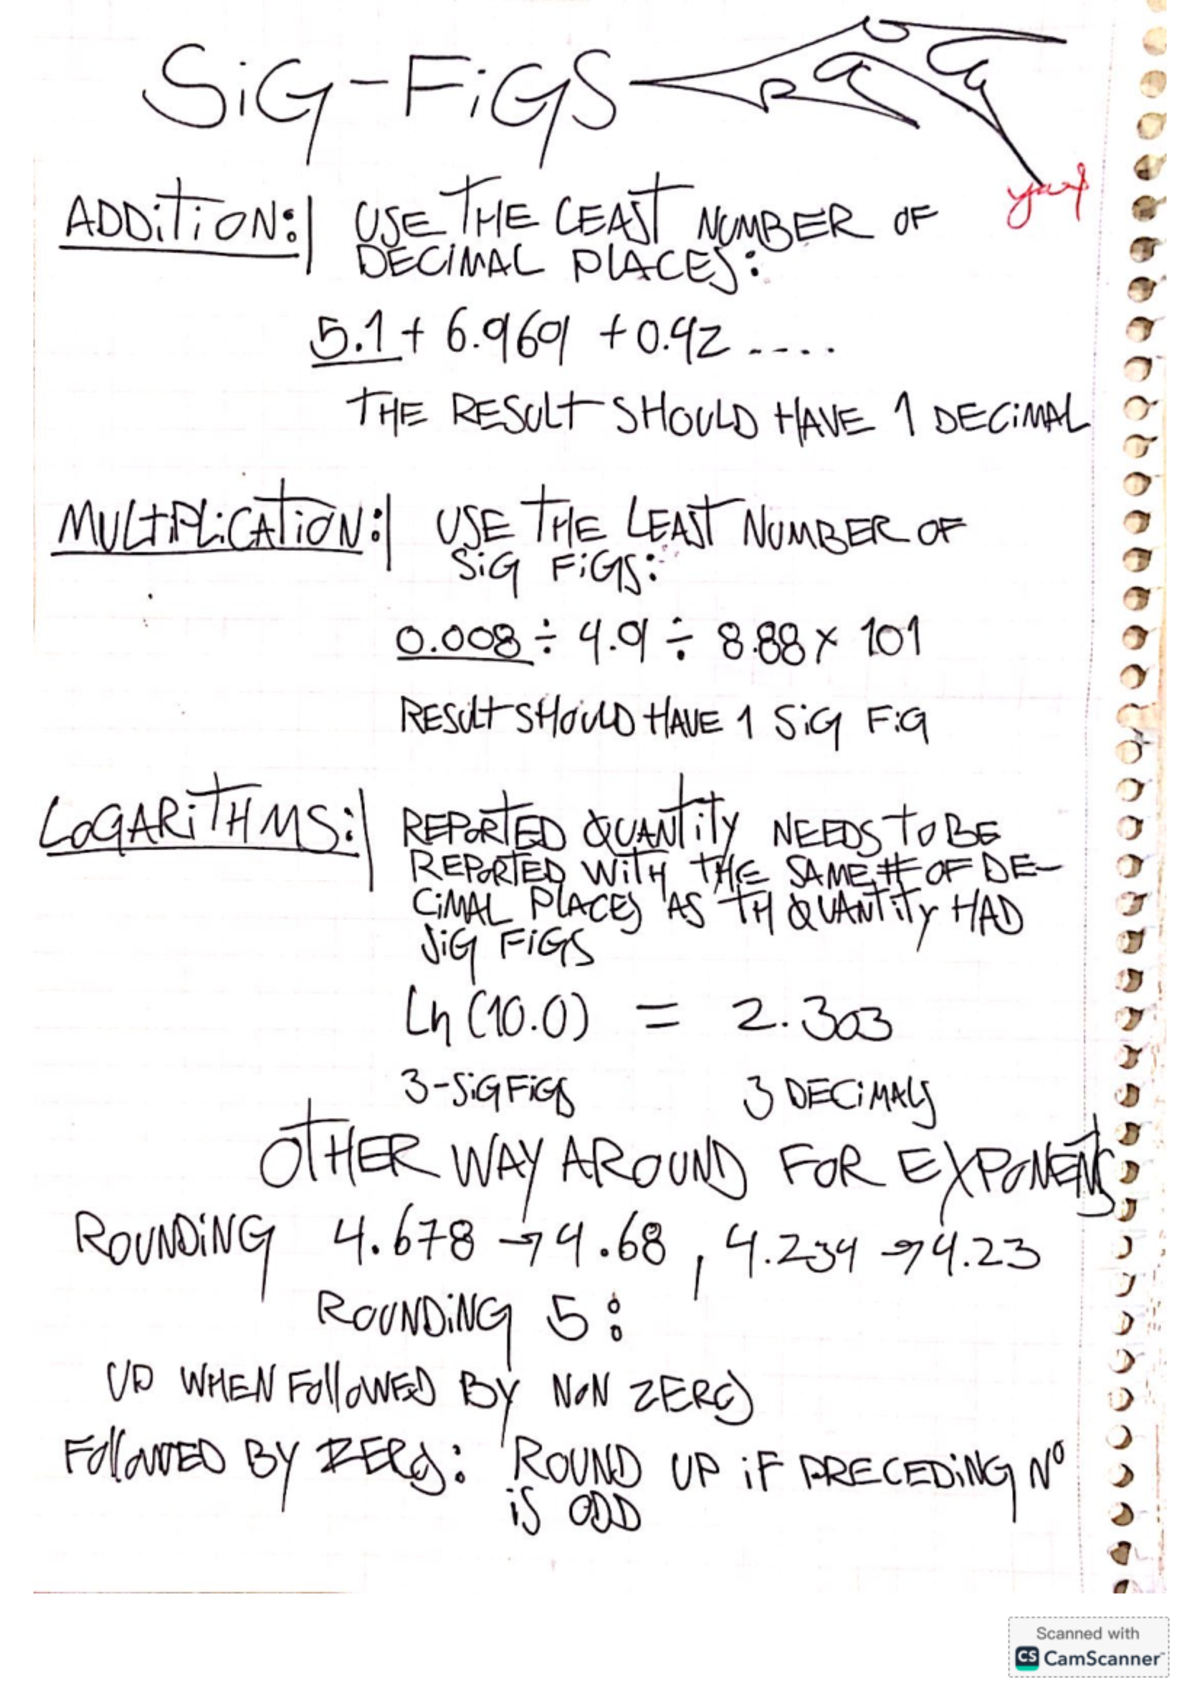 SiG-FiGS
yay
ADDiTiON: USE THE LEAST NUMBER OF
DECIMAL PLACES:
5.1 + 6.969 + 0.42 ....
THE RESULT SHOULD HAVE 1 DECiMAL
MULTiPLiCATiON: USE THE LEAST NUMBER OF
SiG FiGS:
0.008 ÷ 4.9 ÷ 8.88 × 101
RESULT SHOULD HAVE 1 SiG FiG
LOGARiTHMS: REPORTED QUANTiTY NEEDS TO BE
REPORTED WiTH THE SAME # OF DE-
CiMAL PLACES AS TH QUANTiTY HAD
SiG FiGS
Ln (10.0) = 2.303
3-SiGFiGS 3 DECiMALS
OTHER WAY AROUND FOR EXPONENTS
ROUNDiNG 4.678 → 4.68 , 4.234 → 4.23
ROUNDiNG 5:
UP WHEN FOLLOWED BY NON ZEROS
FOLLOWED BY ZEROS: ROUND UP iF PRECEDiNG Nº
iS ODD
Scanned with
CS CamScanner